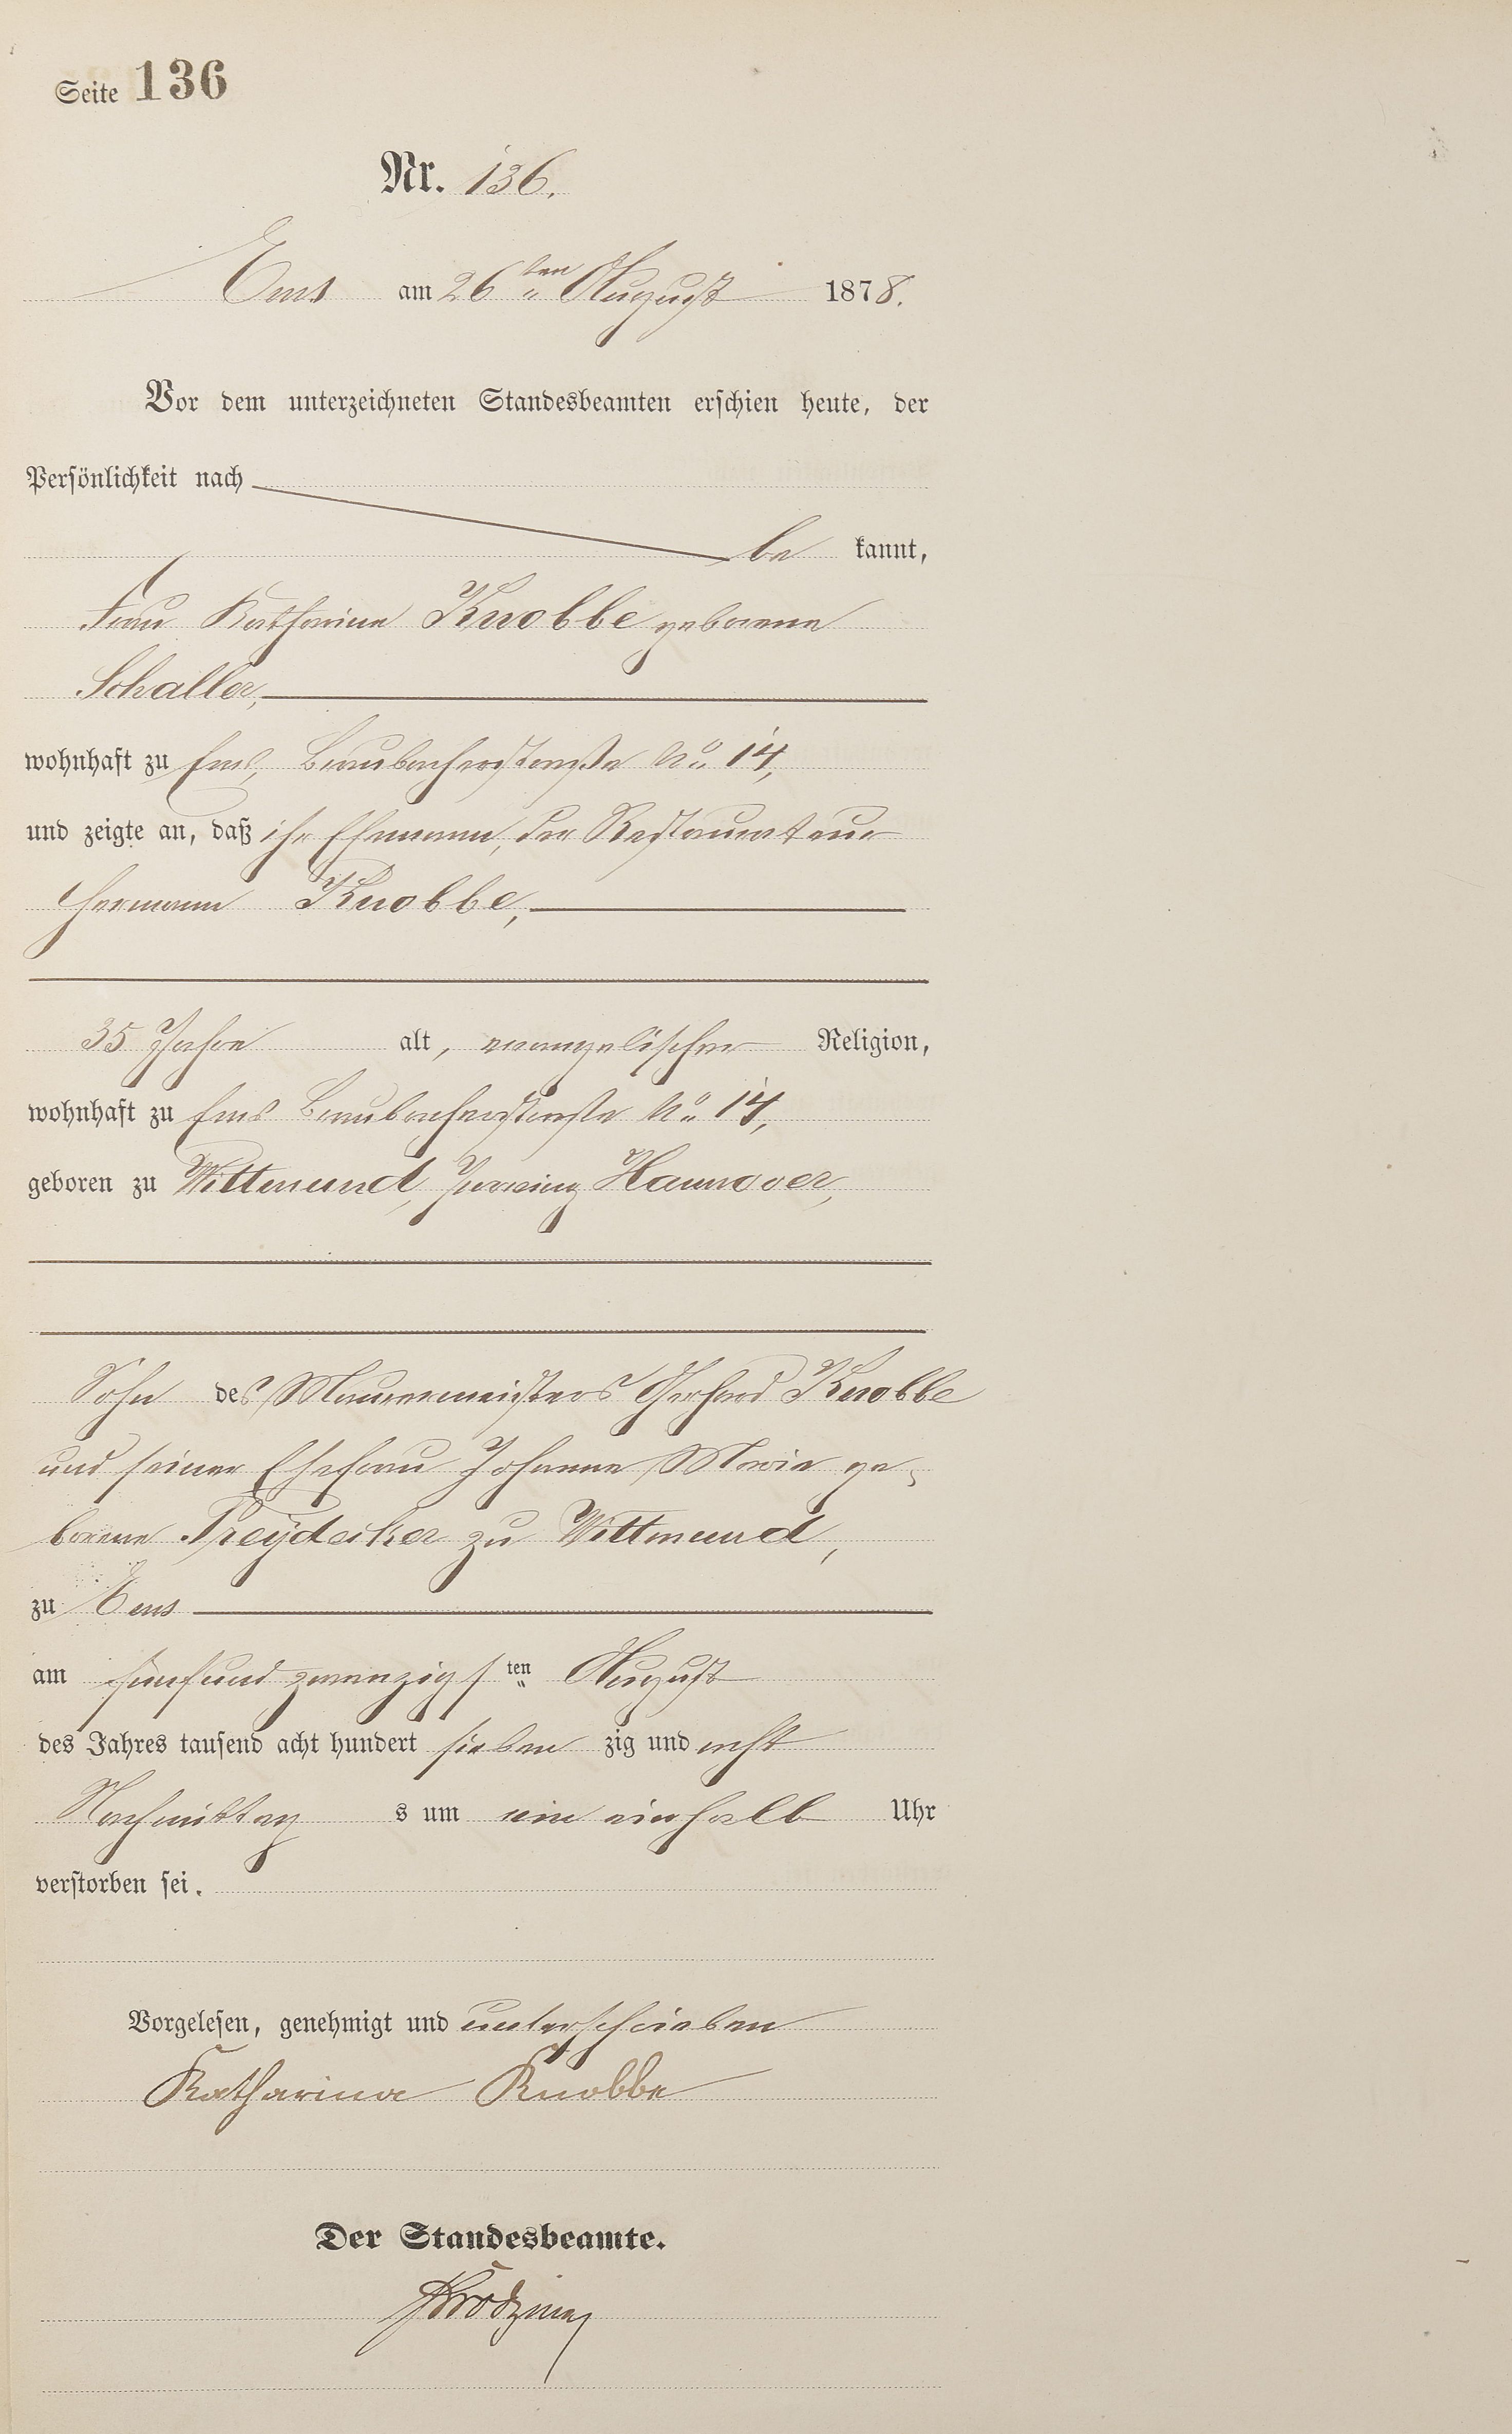 Seite 136
Nr. 136.
Ems am 26ten August 1878.
Vor dem unterzeichneten Standesbeamten erschien heute, der
Persönlichkeit nach
be kannt,
Frau Katharine Knobbe geborene
Schaller,
wohnhaft zu Ems, Braubacherstraße No. 14,
und zeigte an, daß ihr Ehemann, der Restaurateur
Hermann Knobbe,
35 Jahre alt, evangelischer Religion,
wohnhaft zu Ems Braubacherstraße No. 14,
geboren zu Wittmund, Provinz Hannover,
Sohn des Mauermeisters Gerhard Knobbe
und seiner Ehefrau Johanne Marie ge-
borene zu Wittmund,
zu Ems
am fünfund zwanzigsten August
des Jahres tausend acht hundert sieben zig und acht
Nachmittag s um ein einhalb Uhr
verstorben sei.
Vorgelesen, genehmigt und unterschrieben
Katharina Knobbe
Der Standesbeamte.